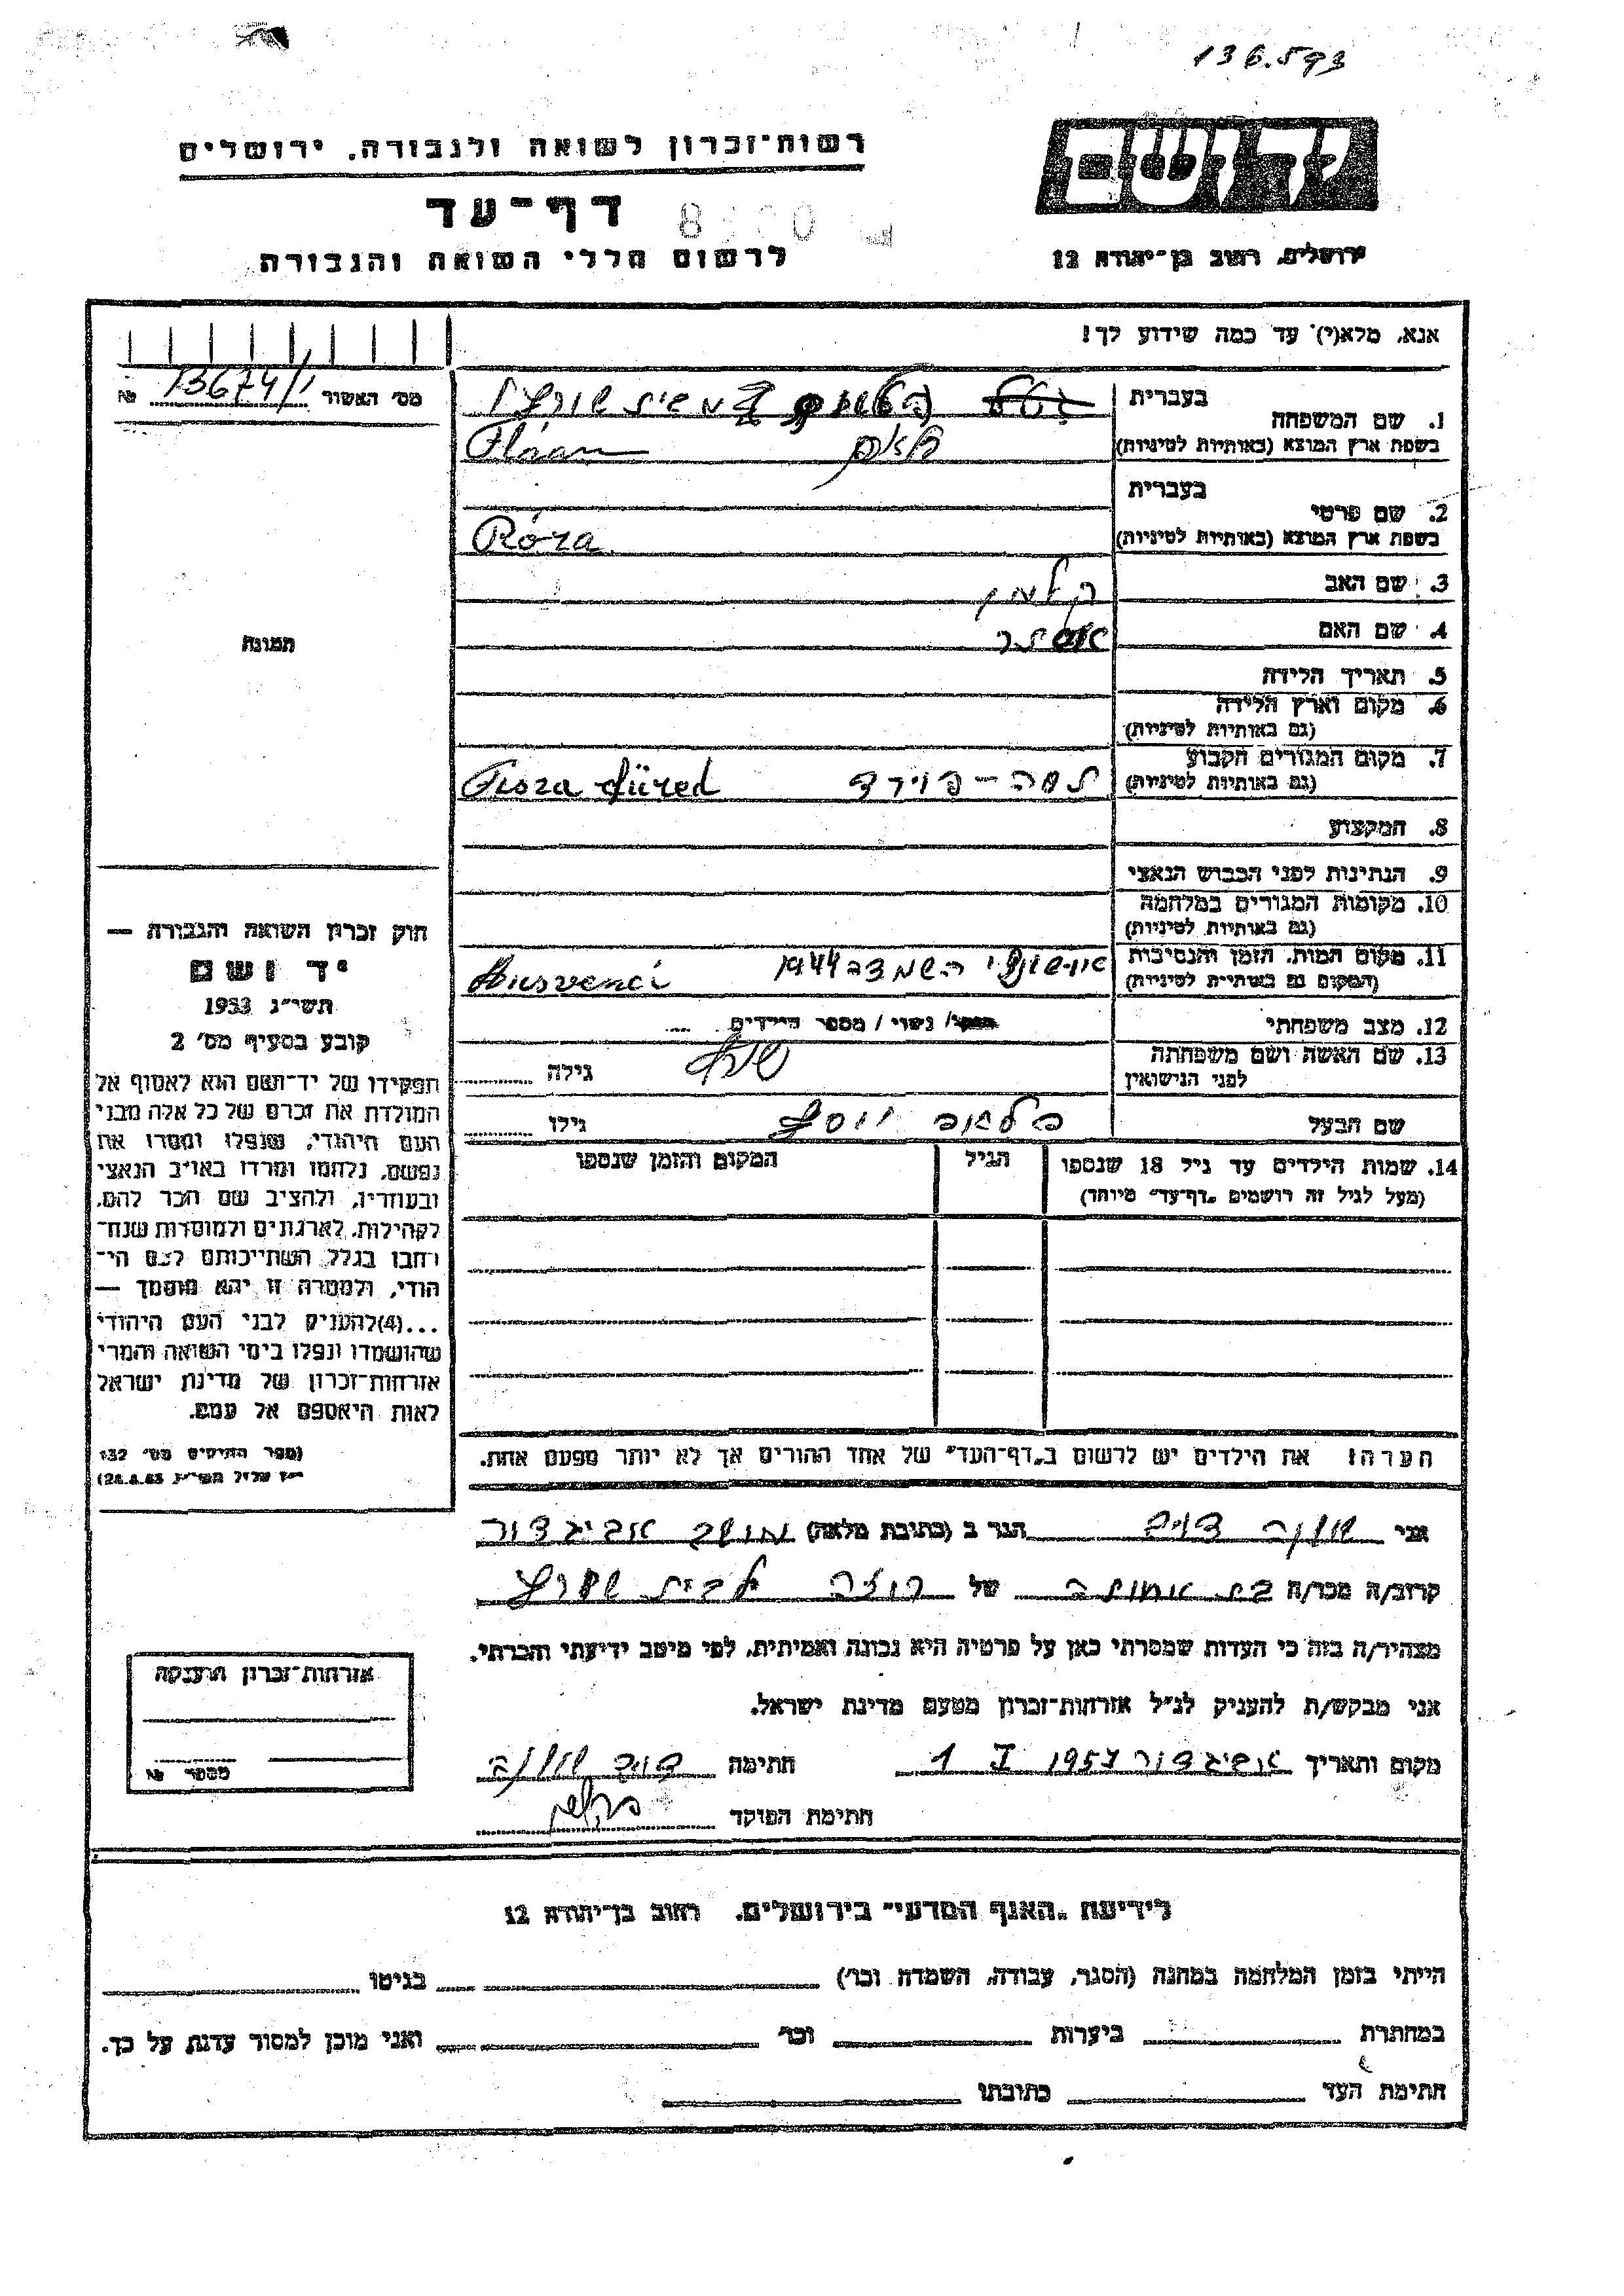 136.593
רשות־זכרון לשואה ולגבורה, ירושלים
דף־עד
לרשום חללי השואה והגבורה
ירושלים, רחוב בן־יהודה 12
אנא, מלא(י) עד כמה שידוע לך!
מס׳ האשור 13674/1 №
1. שם המשפחה
בעברית
בשפת ארץ המוצא (באותיות לטיניות)
2. שם פרטי
בעברית
בשפת ארץ המוצא (באותיות לטיניות) Róza
3. שם האב קלמן
4. שם האם אסתר
תמונה
5. תאריך הלידה
6. מקום וארץ הלידה
(גם באותיות לטיניות)
7. מקום המגורים הקבוע
(גם באותיות לטיניות) תסה־פירד Tisza füred
8. המקצוע
9. הנתינות לפני הכבוש הנאצי
10. מקומות המגורים במלחמה
(גם באותיות לטיניות)
11. מקום המות, הזמן והנסיבות 1944
(המקום גם באותיות לטיניות) Ausvenci
12. מצב משפחתי / נשוי / מספר הילדים
13. שם האשה ושם משפחתה
לפני הנישואין גילה
שם הבעל יוסף גילו
14. שמות הילדים עד גיל 18 שנספו הגיל המקום והזמן שנספו
(מעל לגיל זה רושמים „דף־עד״ מיוחד)
הערה: את הילדים יש לרשום ב„דף־העד״ של אחד ההורים אך לא יותר מפעם אחת.
חוק זכרון השואה והגבורה —
יד ושם
תשי״ג 1953
קובע בסעיף מס׳ 2
תפקידו של יד־ושם הוא לאסוף אל
המולדת את זכרם של כל אלה מבני
העם היהודי, שנפלו ומסרו את
נפשם, נלחמו ומרדו באויב הנאצי
ובעוזריו, ולהציב שם וזכר להם,
לקהילות, לארגונים ולמוסדות שנח־
רחבו בגלל השתייכותם לעם הי־
הודי, ולמטרה זו יהא מוסמך —
...(4)להעניק לבני העם היהודי
שהושמדו ונפלו בימי השואה והמרי
אזרחות־זכרון של מדינת ישראל
לאות היאספם אל עמם.
(ספר החוקים מס׳ 132
אני דוד הגר ב (כתובת מלאה) מושב אביגדור
קרוב/ה מכר/ה של רוזה לבית שורץ
מצהיר/ה בזה כי העדות שמסרתי כאן על פרטיה היא נכונה ואמיתית, לפי מיטב ידיעתי והכרתי.
אני מבקש/ת להעניק לנ״ל אזרחות־זכרון מטעם מדינת ישראל.
מקום ותאריך אביגדור 1957 I 1 חתימה דוד
חתימת הפוקד
אזרחות־זכרון הוענקה
מספר №
לידיעת „האגף המדעי״ בירושלים, רחוב בן־יהודה 12
הייתי בזמן המלחמה במחנה (הסגר, עבודה, השמדה וכו׳) בגיטו
במחתרת ביערות וכו׳ ואני מוכן למסור עדות על כך.
חתימת העד כתובתו